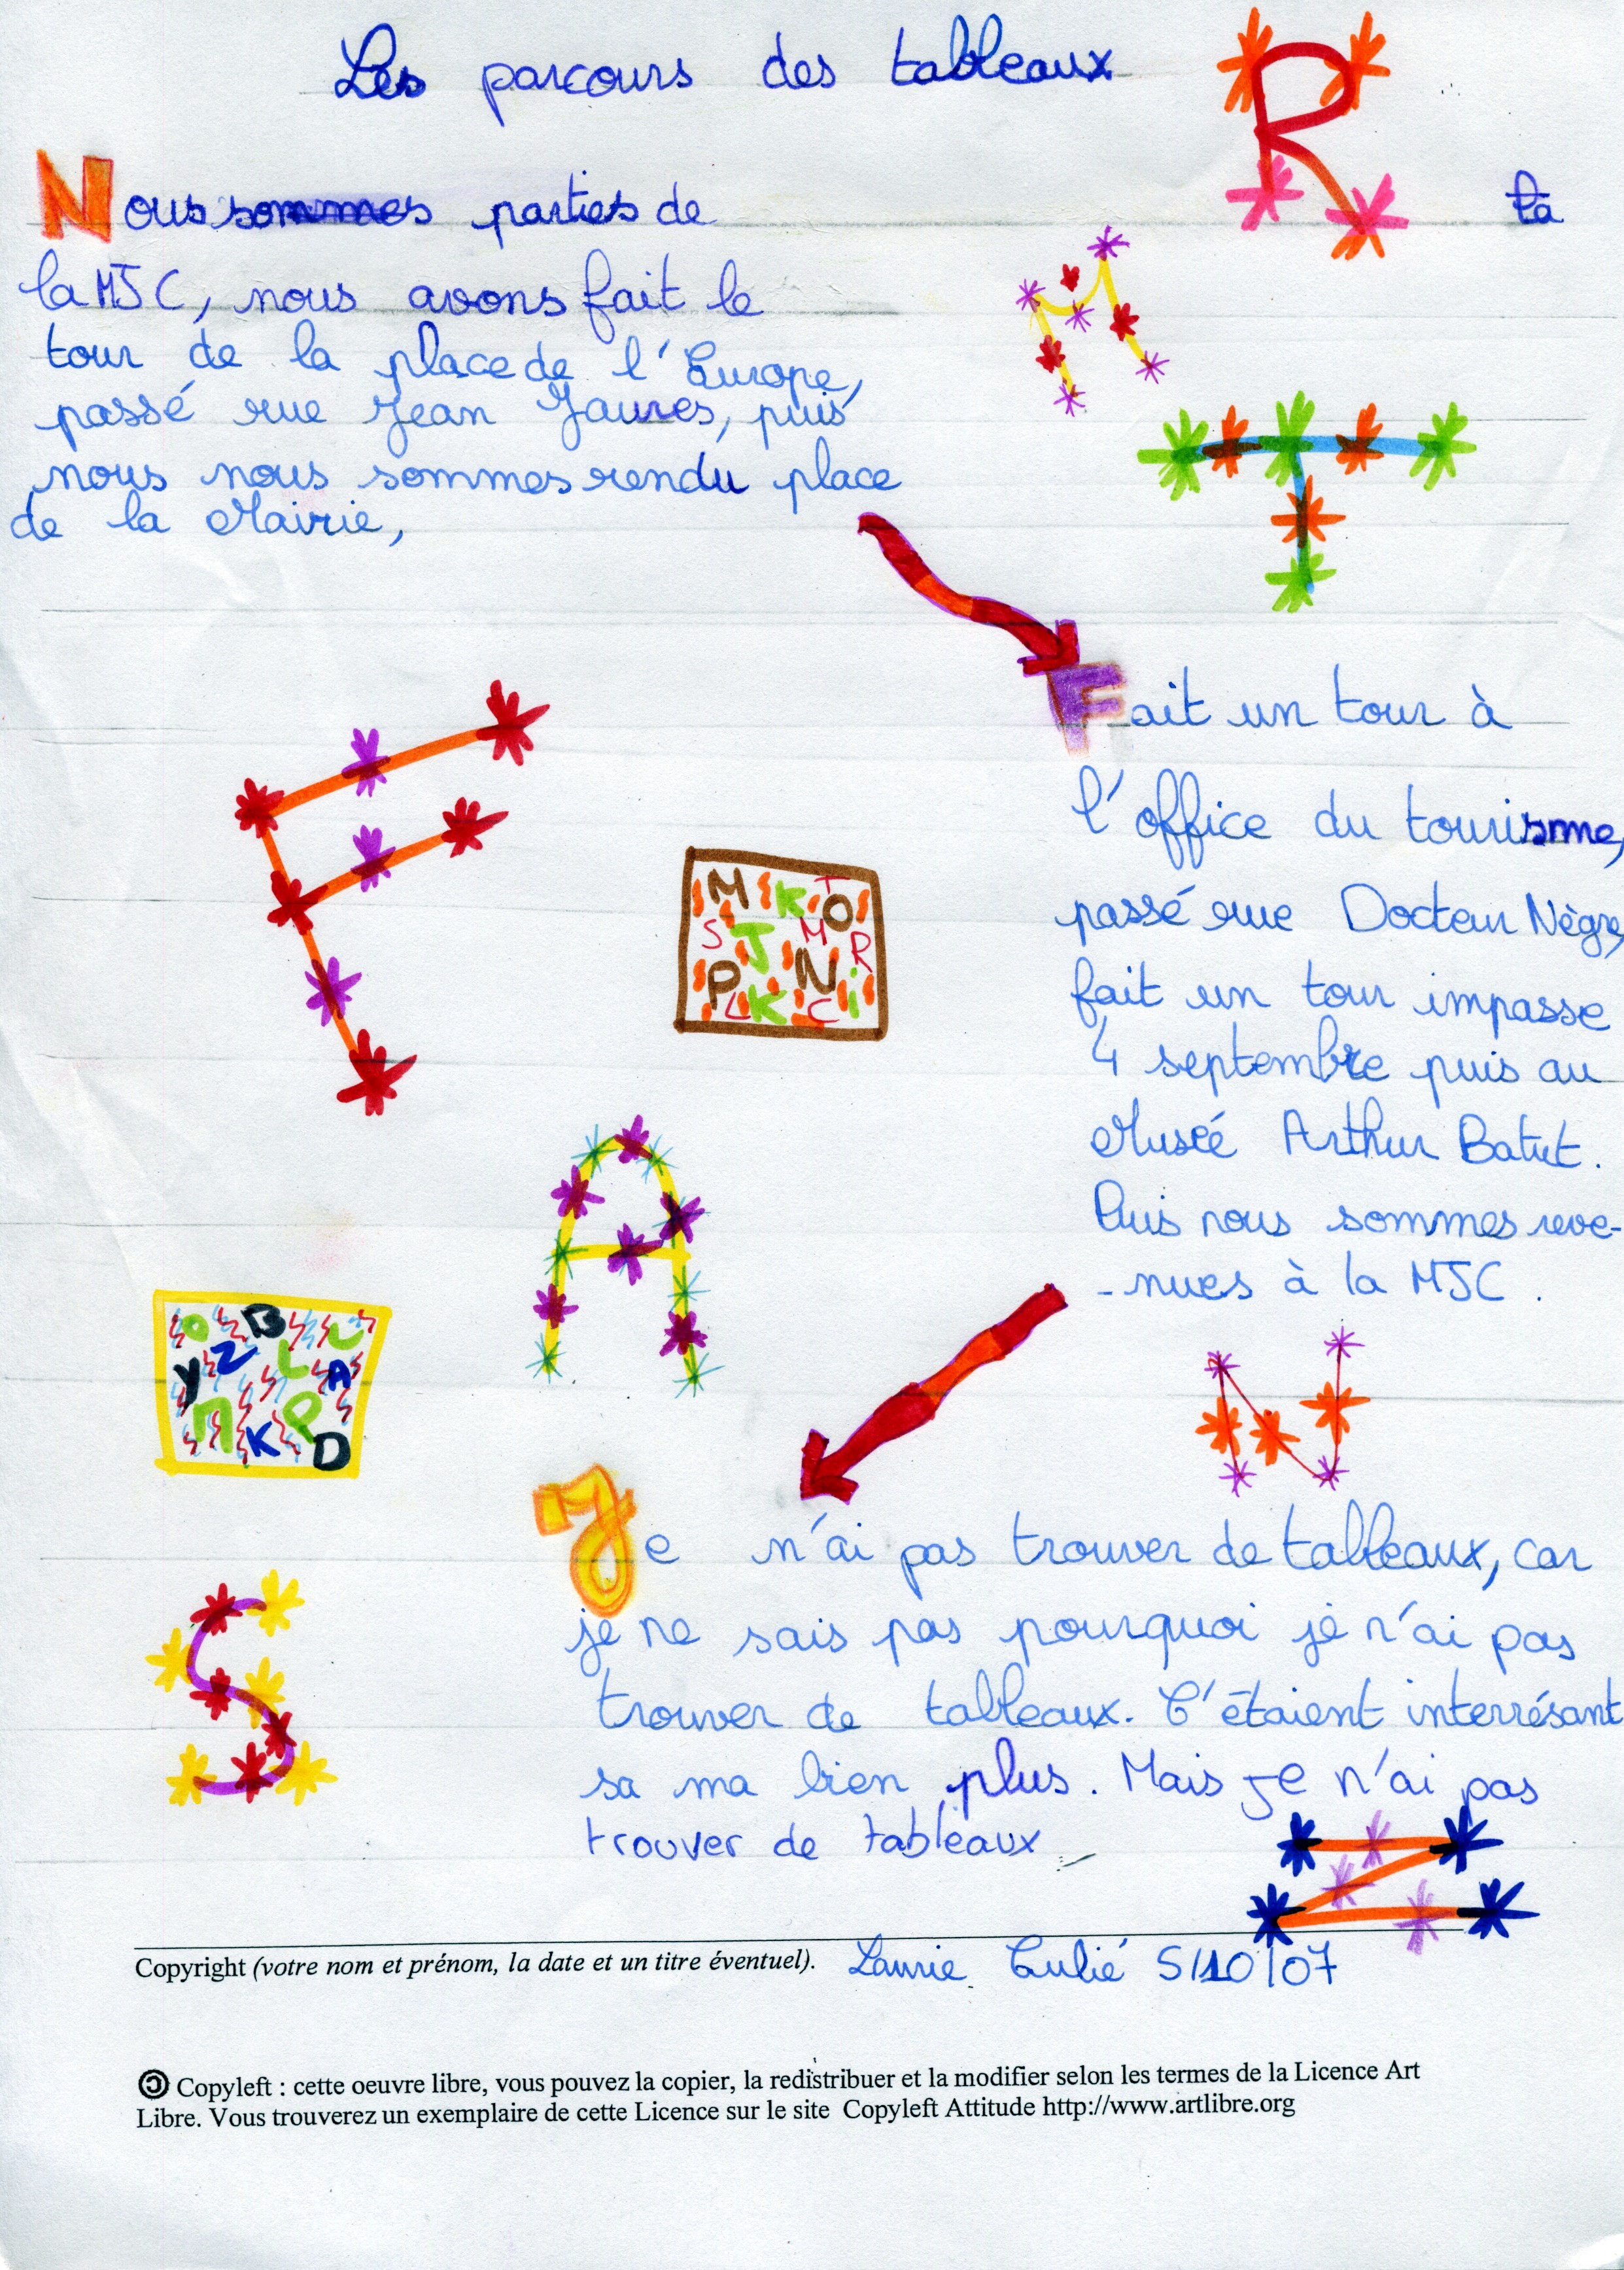 Les parcours des tableaux
R
Nous sommes parties de
la
la MJC, nous avons fait le
M
tour de la place de l'Europe,
passé rue Jean Jaures, puis
T
nous nous sommes rendu place
de la Mairie,
Fait un tour à
F
l'office du tourisme,
passé rue Docteur Nègre,
fait un tour impasse
4 septembre puis au
Museé Arthur Batut.
Puis nous sommes reve-
-nues à la MJC.
M K T O
S J M R
P N
L K C i
A
O B L
Y Z L A
M K P D
N
Je n'ai pas trouver de tableaux, car
je ne sais pas pourquoi je n'ai pas
S
trouver de tableaux. C'étaient interrésant
sa ma bien plus. Mais Je n'ai pas
trouver de tableaux
Z
Copyright (votre nom et prénom, la date et un titre éventuel). Laurie Culié 5/10/07
Copyleft : cette oeuvre libre, vous pouvez la copier, la redistribuer et la modifier selon les termes de la Licence Art
Libre. Vous trouverez un exemplaire de cette Licence sur le site Copyleft Attitude http://www.artlibre.org